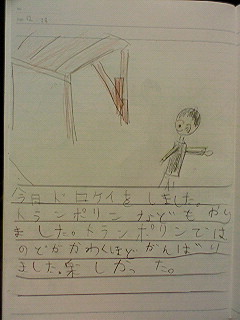 今日ドロケイをしました。
トランポリンなどもやり
ました。トランポリンでは
のどがかわくほどがんばり
ました。楽しかった。